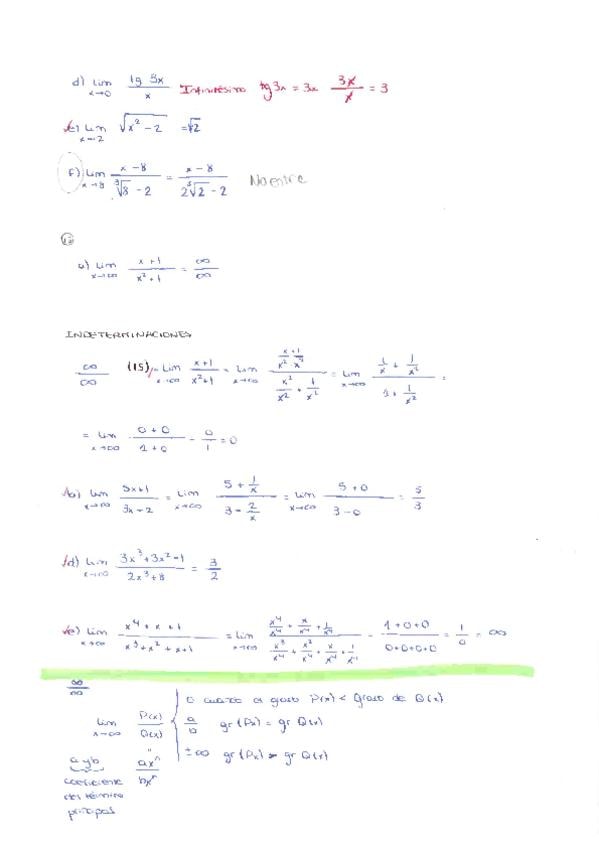 d) lim x→0 tg 3x / x Infinitésimo tg 3x = 3x 3x / x = 3
e) lim x→2 √(x² - 2) = √2
f) lim x→8 (x - 8) / (∛8 - 2) = (x - 8) / (2∛2 - 2) No entre
a) lim x→∞ (x + 1) / (x² + 1) = ∞/∞
INDETERMINACIONES
∞/∞ (15) lim x→∞ (x+1) / (x²+1) = lim x→∞ (x+1 / x² x²) / (x²/x² + 1/x²) = lim x→∞ (1/x + 1/x²) / (1 + 1/x²) =
= lim x→∞ (0 + 0) / (1 + 0) = 0/1 = 0
b) lim x→∞ (5x+1) / (3x-2) = lim x→∞ (5 + 1/x) / (3 - 2/x) = lim x→∞ (5 + 0) / (3 - 0) = 5/3
d) lim x→∞ (3x³ + 3x² - 1) / (2x³ + 8) = 3/2
e) lim x→∞ (x⁴ + x + 1) / (x³ + x² + x + 1) = lim x→∞ (x⁴/x⁴ + x/x⁴ + 1/x⁴) / (x³/x⁴ + x²/x⁴ + x/x⁴ + 1/x⁴) = (1+0+0) / (0+0+0+0) = 1/0 = ∞
∞/∞
0 cuando el grado P(x) < Grado de Q(x)
lim x→∞ P(x) / Q(x) a/b gr(Px) = gr Q(x)
±∞ gr(Px) > gr Q(x)
a y b axⁿ / bxⁿ
coeficiente
del término
principal